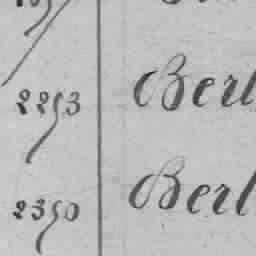 2253 Berl
2350 Berl